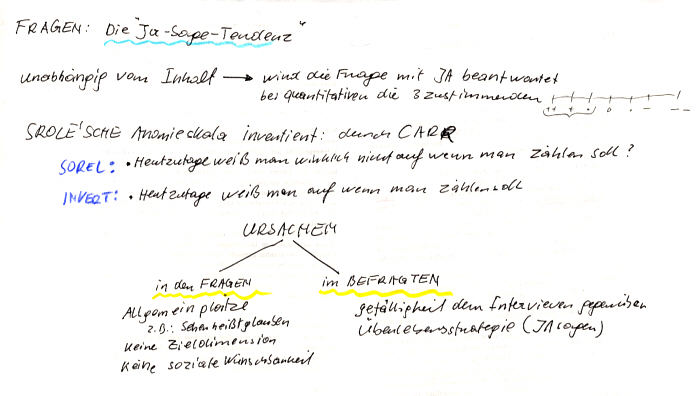 FRAGEN: Die "Ja-Sage-Tendenz"
unabhängig vom Inhalt → wird die Frage mit JA beantwortet
bei quantitativen die 3 zustimmenden
++ + · 0 · - --
SROLE'SCHE Anomieskala invertiert: durch CARR
SOREL: • Heutzutage weiß man wirklich nicht auf wenn man zählen soll?
INVERT: • Heutzutage weiß man auf wenn man zählen soll
URSACHEN
in den FRAGEN
im BEFRAGTEN
Allgemeinplätze
gefälligkeit dem Interviewer gegenüber
z.B.: Sehen heißt glauben
Überlebensstrategie (JA sagen)
Keine Zieldimension
Keine soziale Wünschbarkeit